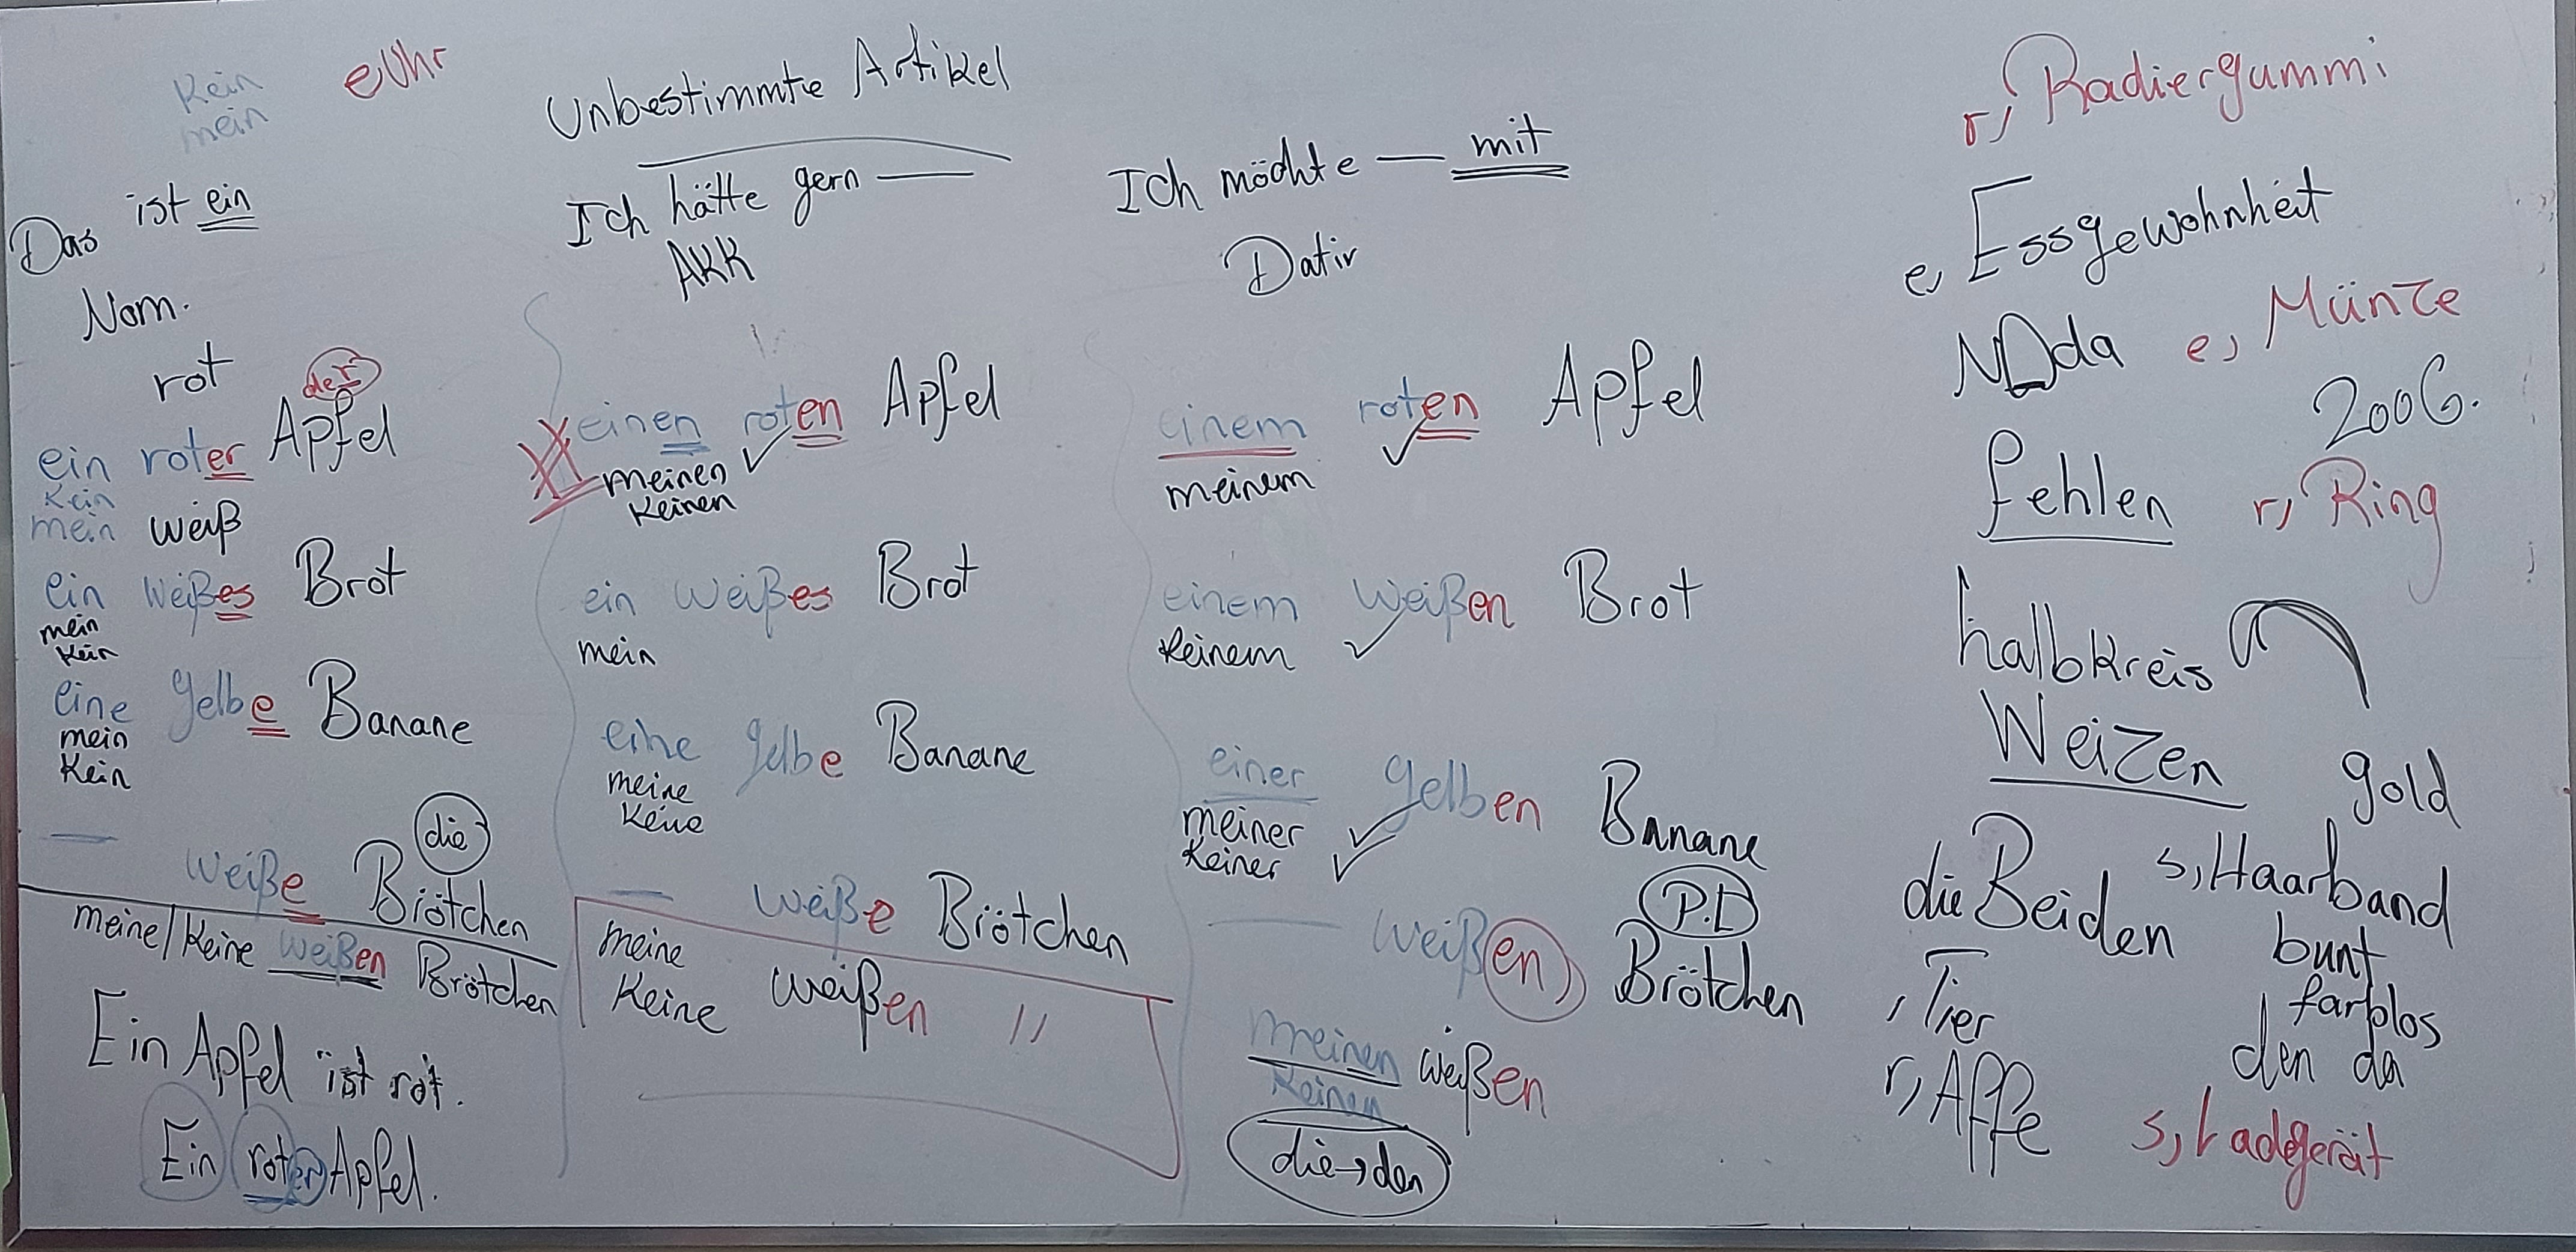 Kein
mein
e, Uhr
Unbestimmte Artikel
Das ist ein
Nom.
rot
der
ein roter Apfel
Kein
mein
weiß
ein weißes Brot
mein
Kein
eine gelbe Banane
mein
Kein
die
— weiße Brötchen
meine/Keine weißen Brötchen
Ein Apfel ist rot.
Ein roter Apfel.
Ich hätte gern —
AKK
einen roten Apfel
meinen
Keinen
ein weißes Brot
mein
eine gelbe Banane
meine
Keine
— weiße Brötchen
meine
Keine weißen "
Ich möchte — mit
Dativ
einem roten Apfel
meinem
einem weißen Brot
Keinem
einer gelben Banane
meiner
Keiner
— weißen Brötchen
meinen weißen
Keinen
die → den
r, Radiergummi
e, Essgewohnheit
e, Münze
2006.
fehlen
r, Ring
halbkreis
Weizen
gold
die Beiden
s, Haarband
bunt
farblos
, Tier
den da
r, Affe
s, Ladgerät